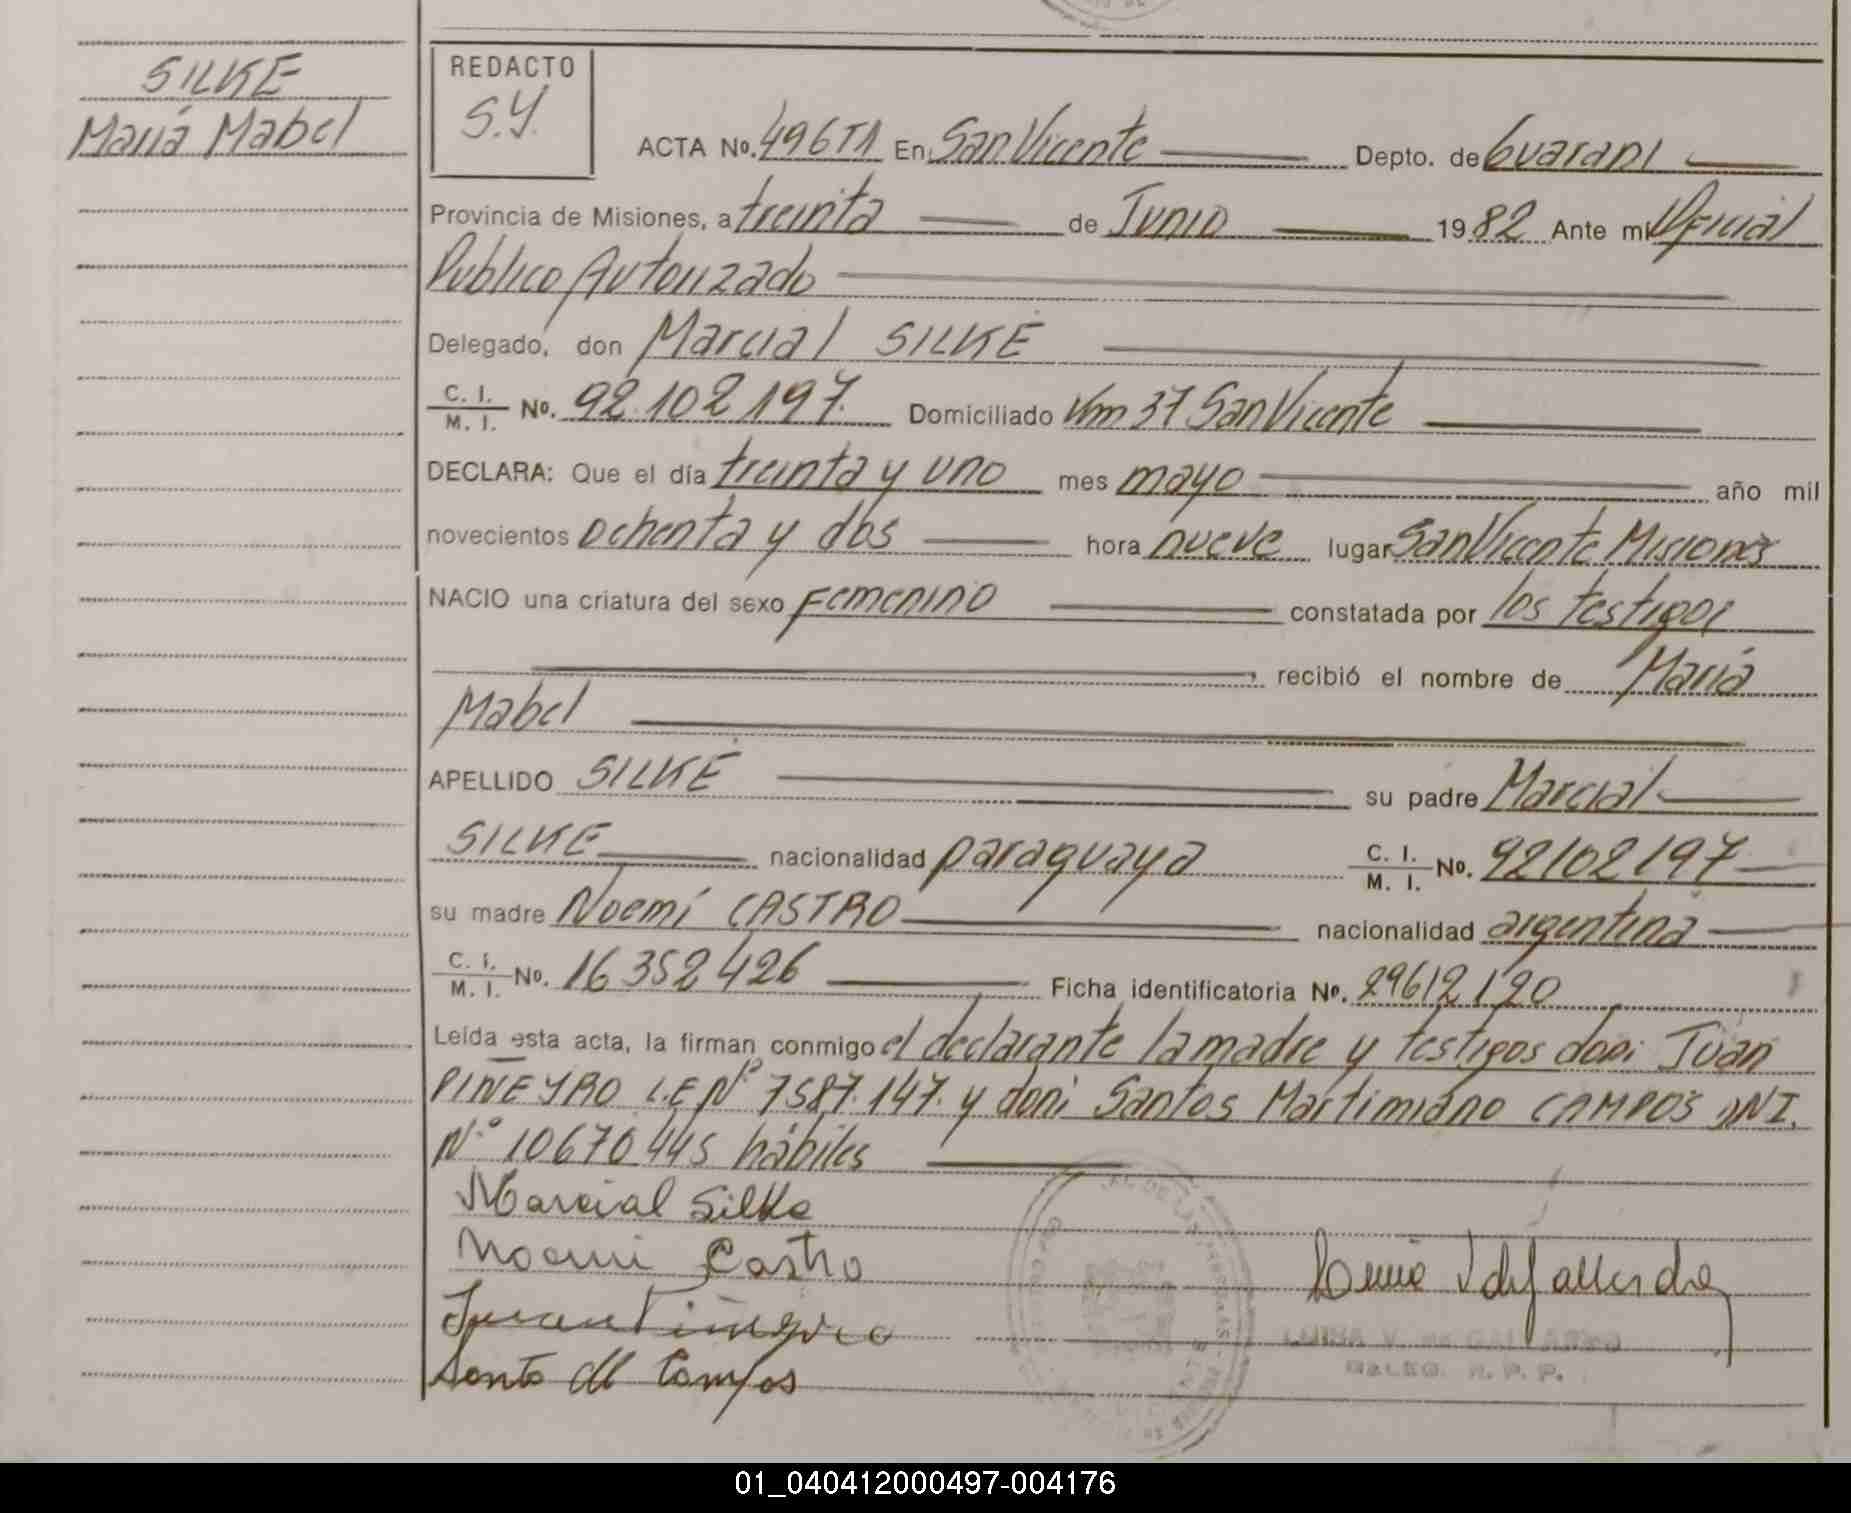 SILKE
María Mabel
REDACTO
S.Y.
ACTA No. 496T1 En San Vicente Depto. de Guaraní
Provincia de Misiones, a treinta de Junio 1982 Ante mí Oficial
Publico Autorizado
Delegado, don Marcial SILKE
C. I. / M. I. No. 92.102.197. Domiciliado Km 37 San Vicente
DECLARA: Que el día treinta y uno mes mayo año mil
novecientos ochenta y dos hora nueve lugar San Vicente Misiones
NACIO una criatura del sexo Femenino constatada por los testigos
recibió el nombre de María
Mabel
APELLIDO SILKE su padre Marcial
SILKE nacionalidad paraguaya C. I. / M. I. No. 92102197
su madre Noemí CASTRO nacionalidad argentina
C. I. / M. I. No. 16352426 Ficha identificatoria No. 29612120
Leída esta acta, la firman conmigo el declarante la madre y testigos don: Juan
PIÑEYRO L.E Nº 7587.147. y don: Santos Martimiano CAMPOS DNI.
Nº 10670445 hábiles
Marcial Silke
Noemi Castro
Juan Piñeyro
Santo M Campos
LUISA V. de GALLARDO
DELEG. R. P. P.
01_040412000497-004176